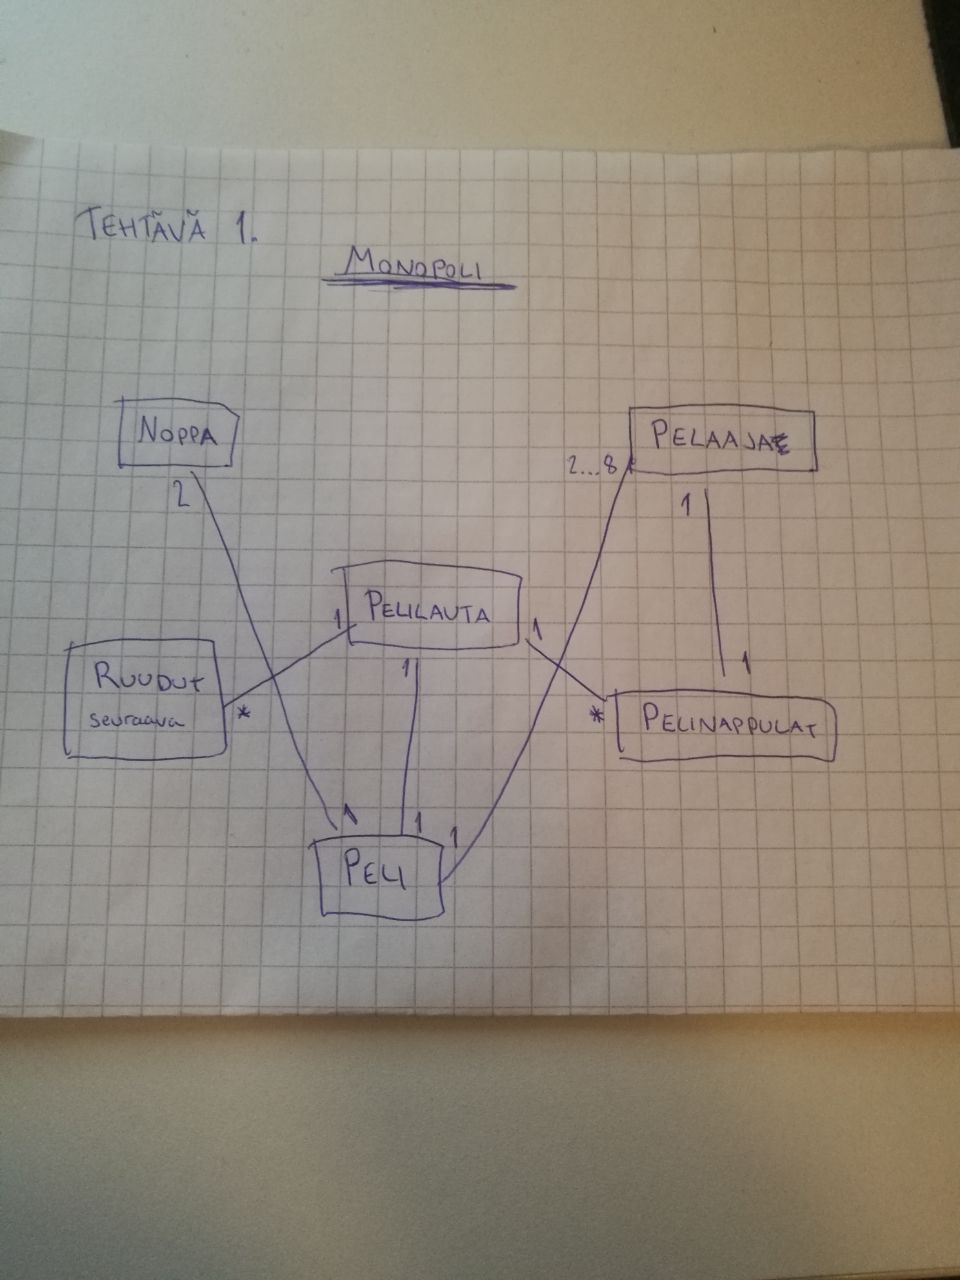 TEHTÄVÄ 1.
MONOPOLI
NOPPA
PELAAJA
2...8
2
1
PELILAUTA
1
1
1
1
RUUDUT
seuraava
*
*
PELINAPPULAT
1
1
1
PELI